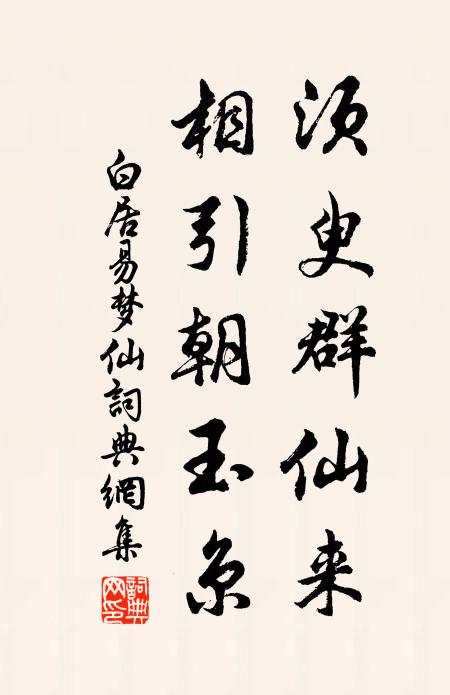 须臾群仙来
相引朝玉京
白居易梦仙詞典網集
詞典网印